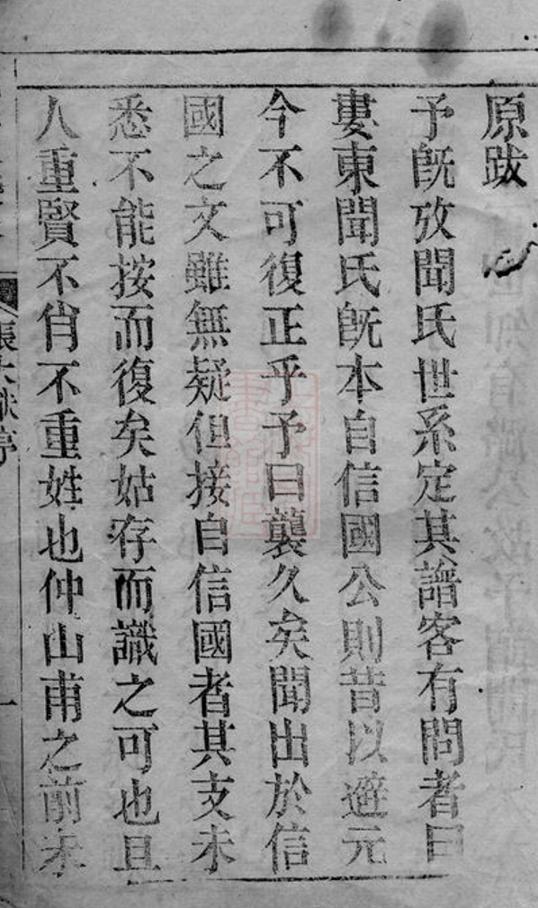 原跋
予旣攷聞氏世系定其譜客有問者曰
婁東聞氏旣本自信國公則昔以避元
今不可復正乎予曰襲久矣聞出於信
國之文雖無疑但接自信國者其支未
悉不能按而復矣姑存而識之可也且
人重賢不肖不重姓也仲山甫之前未